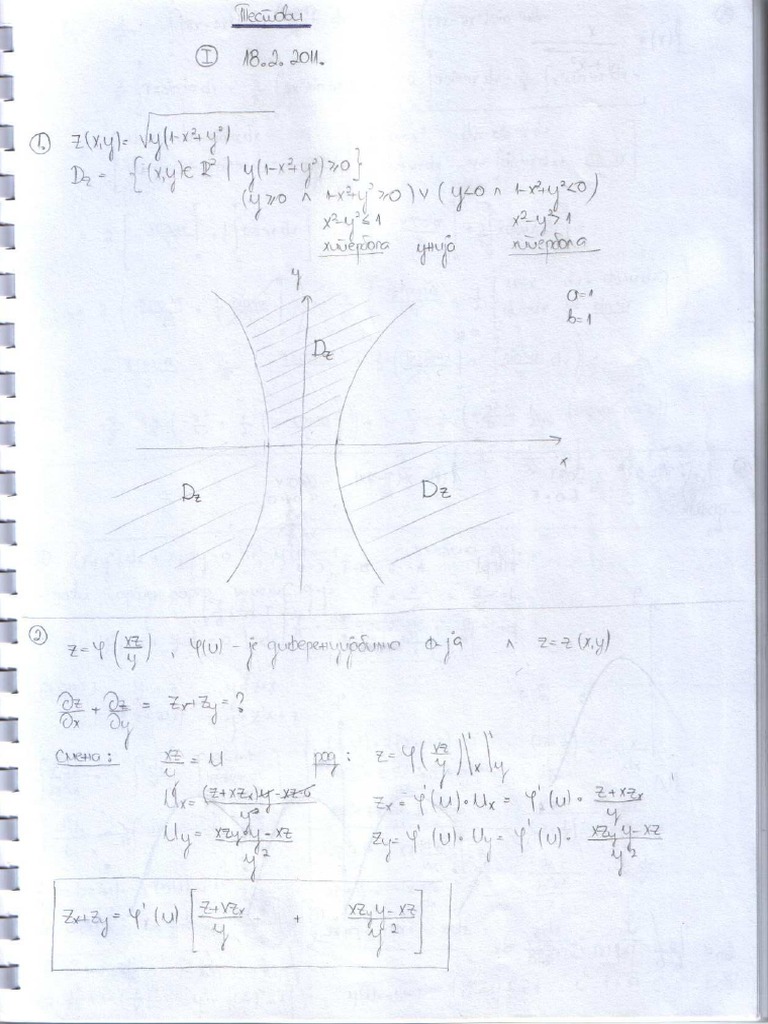 Тестови
I 18.2.2011.
1. z(x,y)= √y(1-x²+y²)
Dz = {(x,y)∈ℝ² | y(1-x²+y²)≥0}
(y≥0 ∧ 1-x²+y²≥0) ∨ (y<0 ∧ 1-x²+y²<0)
x²-y²≤1 x²-y²>1
хипербола унија хипербола
y
a=1
b=1
Dz
x
Dz Dz
2. z=φ(xz/y), φ(u) - је диференцијабилна ф-ја ∧ z=z(x,y)
∂z/∂x + ∂z/∂y = zx+zy=?
смена: xz/y = u рад: z=φ(xz/y)|'x|'y
ux= ((z+xzx)y-xz·0)/y² zx=φ'(u)·ux = φ'(u)· (z+xzx)/y
uy= (xzy·y-xz)/y² zy=φ'(u)·uy=φ'(u)· (xzyy-xz)/y²
zx+zy=φ'(u)[(z+xzx)/y + (xzyy-xz)/y²]